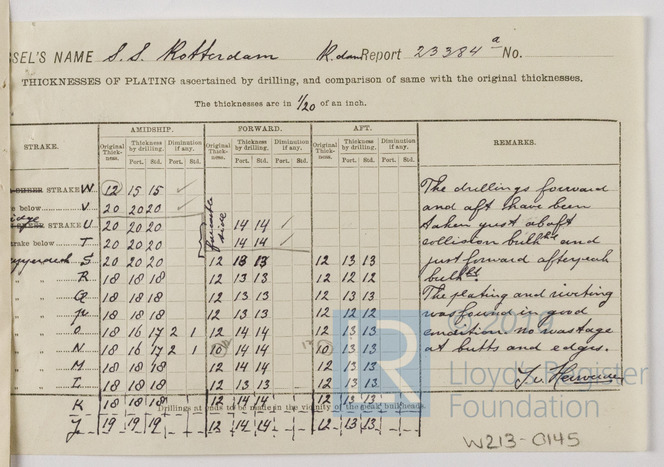 SEL'S NAME S.S. Rotterdam R.dam Report 23384 a No.
THICKNESSES OF PLATING ascertained by drilling, and comparison of same with the original thicknesses.
The thicknesses are in 1/20 of an inch.
STRAKE. AMIDSHIP. FORWARD. AFT. REMARKS.
Original Thickness. Thickness by drilling. Diminution if any. Original Thickness. Thickness by drilling. Diminution if any. Original Thickness. Thickness by drilling. Diminution if any.
Port. Std. Port. Std. Port. Std. Port. Std. Port. Std. Port. Std.
STRAKE W 12 15 15
below V 20 20 20
STRAKE U 20 20 20 14 14
rake below T 20 20 20 14 14
S 20 20 20 12 13 13 12 13 13
" " R 18 18 18 12 13 13 12 12 12
" " Q 18 18 18 12 13 13 12 13 13
" " 18 18 18 12 13 13 12 12 12
" " O 18 16 17 2 12 14 14 12 13 13
" " N 18 16 17 2 1 10 14 14 10 13 13
" " M 18 18 18 12 14 14 12 13 13
" " L 18 18 18 12 13 13 12 13 13
K 18 18 18 12 14 14 12 13 13
J 19 19 19 12 14 14 12 13 13
forecastle side
The drillings forward
and aft have been
taken just abaft
collision bulkhd and
just forward afterpeak
bulkhd
The plating and riveting
was found in good
condition no wastage
at butts and edges.
Drillings at ends to be made in the vicinity of the peak bulkheads.
LR
© 2019
Lloyd's Register
Foundation
W213-0145